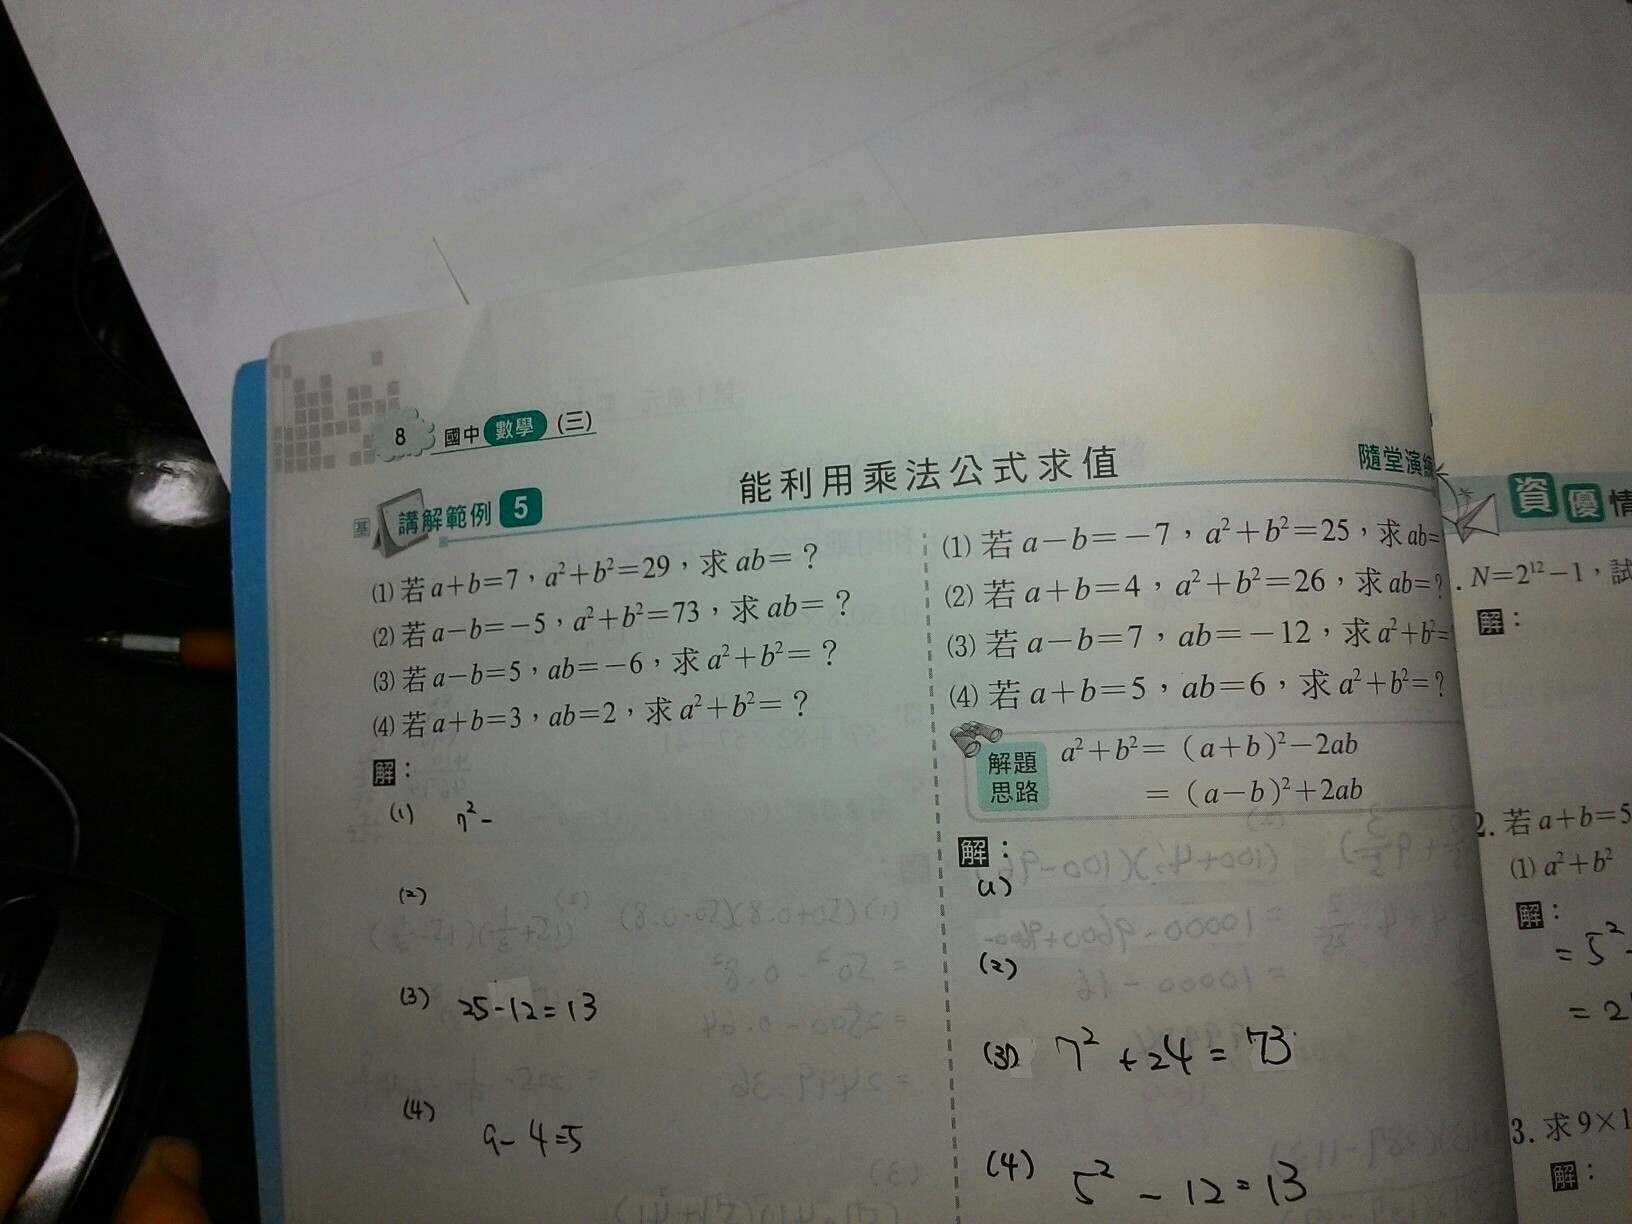 8 國中 數學 (三)
能利用乘法公式求值
基 講解範例 5
(1) 若 a+b=7，a²+b²=29，求 ab=？
(2) 若 a−b=−5，a²+b²=73，求 ab=？
(3) 若 a−b=5，ab=−6，求 a²+b²=？
(4) 若 a+b=3，ab=2，求 a²+b²=？
解：
(1) 7²−
(2)
(3) 25-12=13
(4) 9-4=5
隨堂演練
(1) 若 a−b=−7，a²+b²=25，求 ab=
(2) 若 a+b=4，a²+b²=26，求 ab=？
(3) 若 a−b=7，ab=−12，求 a²+b²=
(4) 若 a+b=5，ab=6，求 a²+b²=？
解題
思路
a²+b²=（a+b）²−2ab
=（a−b）²+2ab
解：
(1)
(2)
(3) 7²+24=73
(4) 5²-12=13
資優情
. N=2¹²−1，試
解：
2. 若 a+b=5
(1) a²+b²
解：
= 5²-
= 2
3. 求 9×1
解：